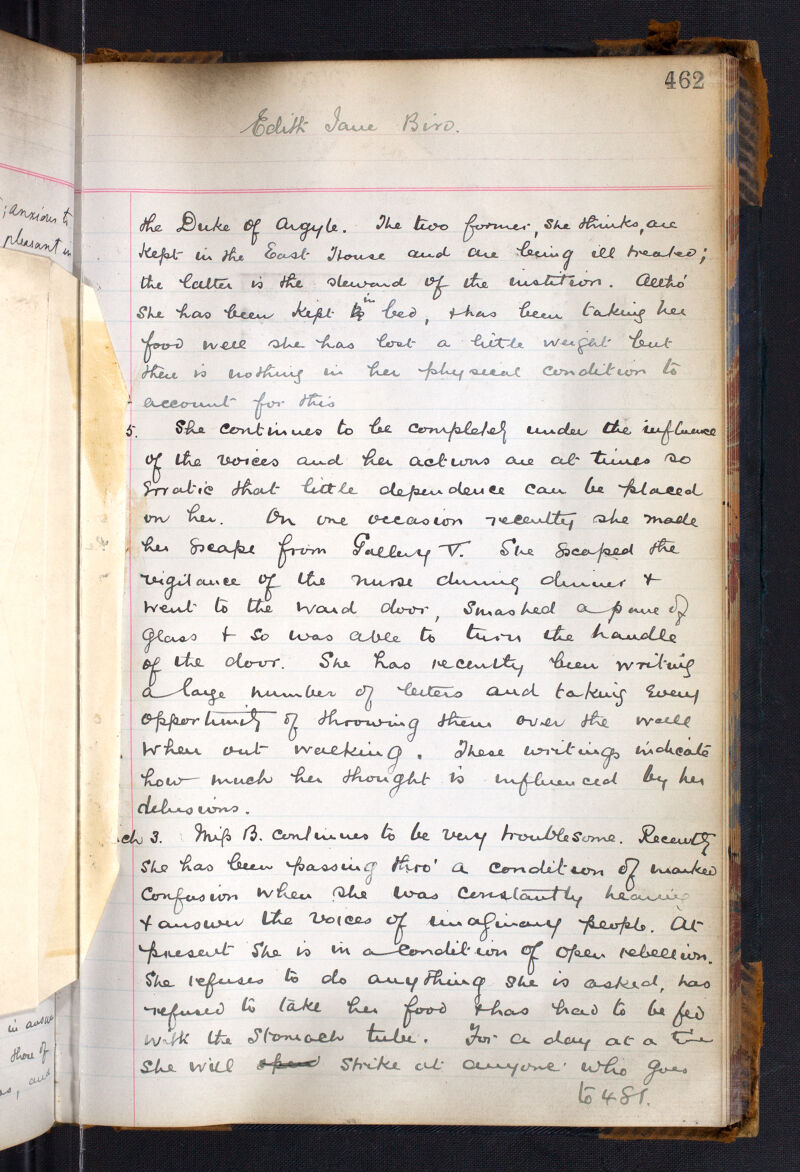 462
Edith Jane Bird.
; anxious to
pleasant in
the Duke of Argyle. The two former, she thinks, are
kept in the East House and are being ill treated;
the latter is the steward of the institution. Altho'
she has been kept in bed, & has been taking her
food well she has lost a little weight but
there is nothing in her physical condition to
account for this
5. She continues to be completely under the influence
of the voices and her actions are at times so
erratic that little dependence can be placed
on her. On one occasion recently she made
her escape from Gallery V. She escaped the
vigilance of the nurse during dinner &
went to the ward door, smashed a pane of
glass & so was able to turn the handle
of the door. She has recently been writing
a large number of letters and taking every
opportunity of throwing them over the wall
when out walking. These writings indicate
how much her thought is influenced by her
delusions.
ch 3. Miss B. continues to be very troublesome. Recently
she has been passing thro' a condition of marked
confusion when she was constantly hearing
& answer the voices of imaginary people. At
present she is in a condition of open rebellion.
She refuses to do anything she is asked, has
refused to take her food & has had to be fed
with the stomach tube. For a day at a time
she will open strike at anyone who goes
to 481.
in answ
those of
and